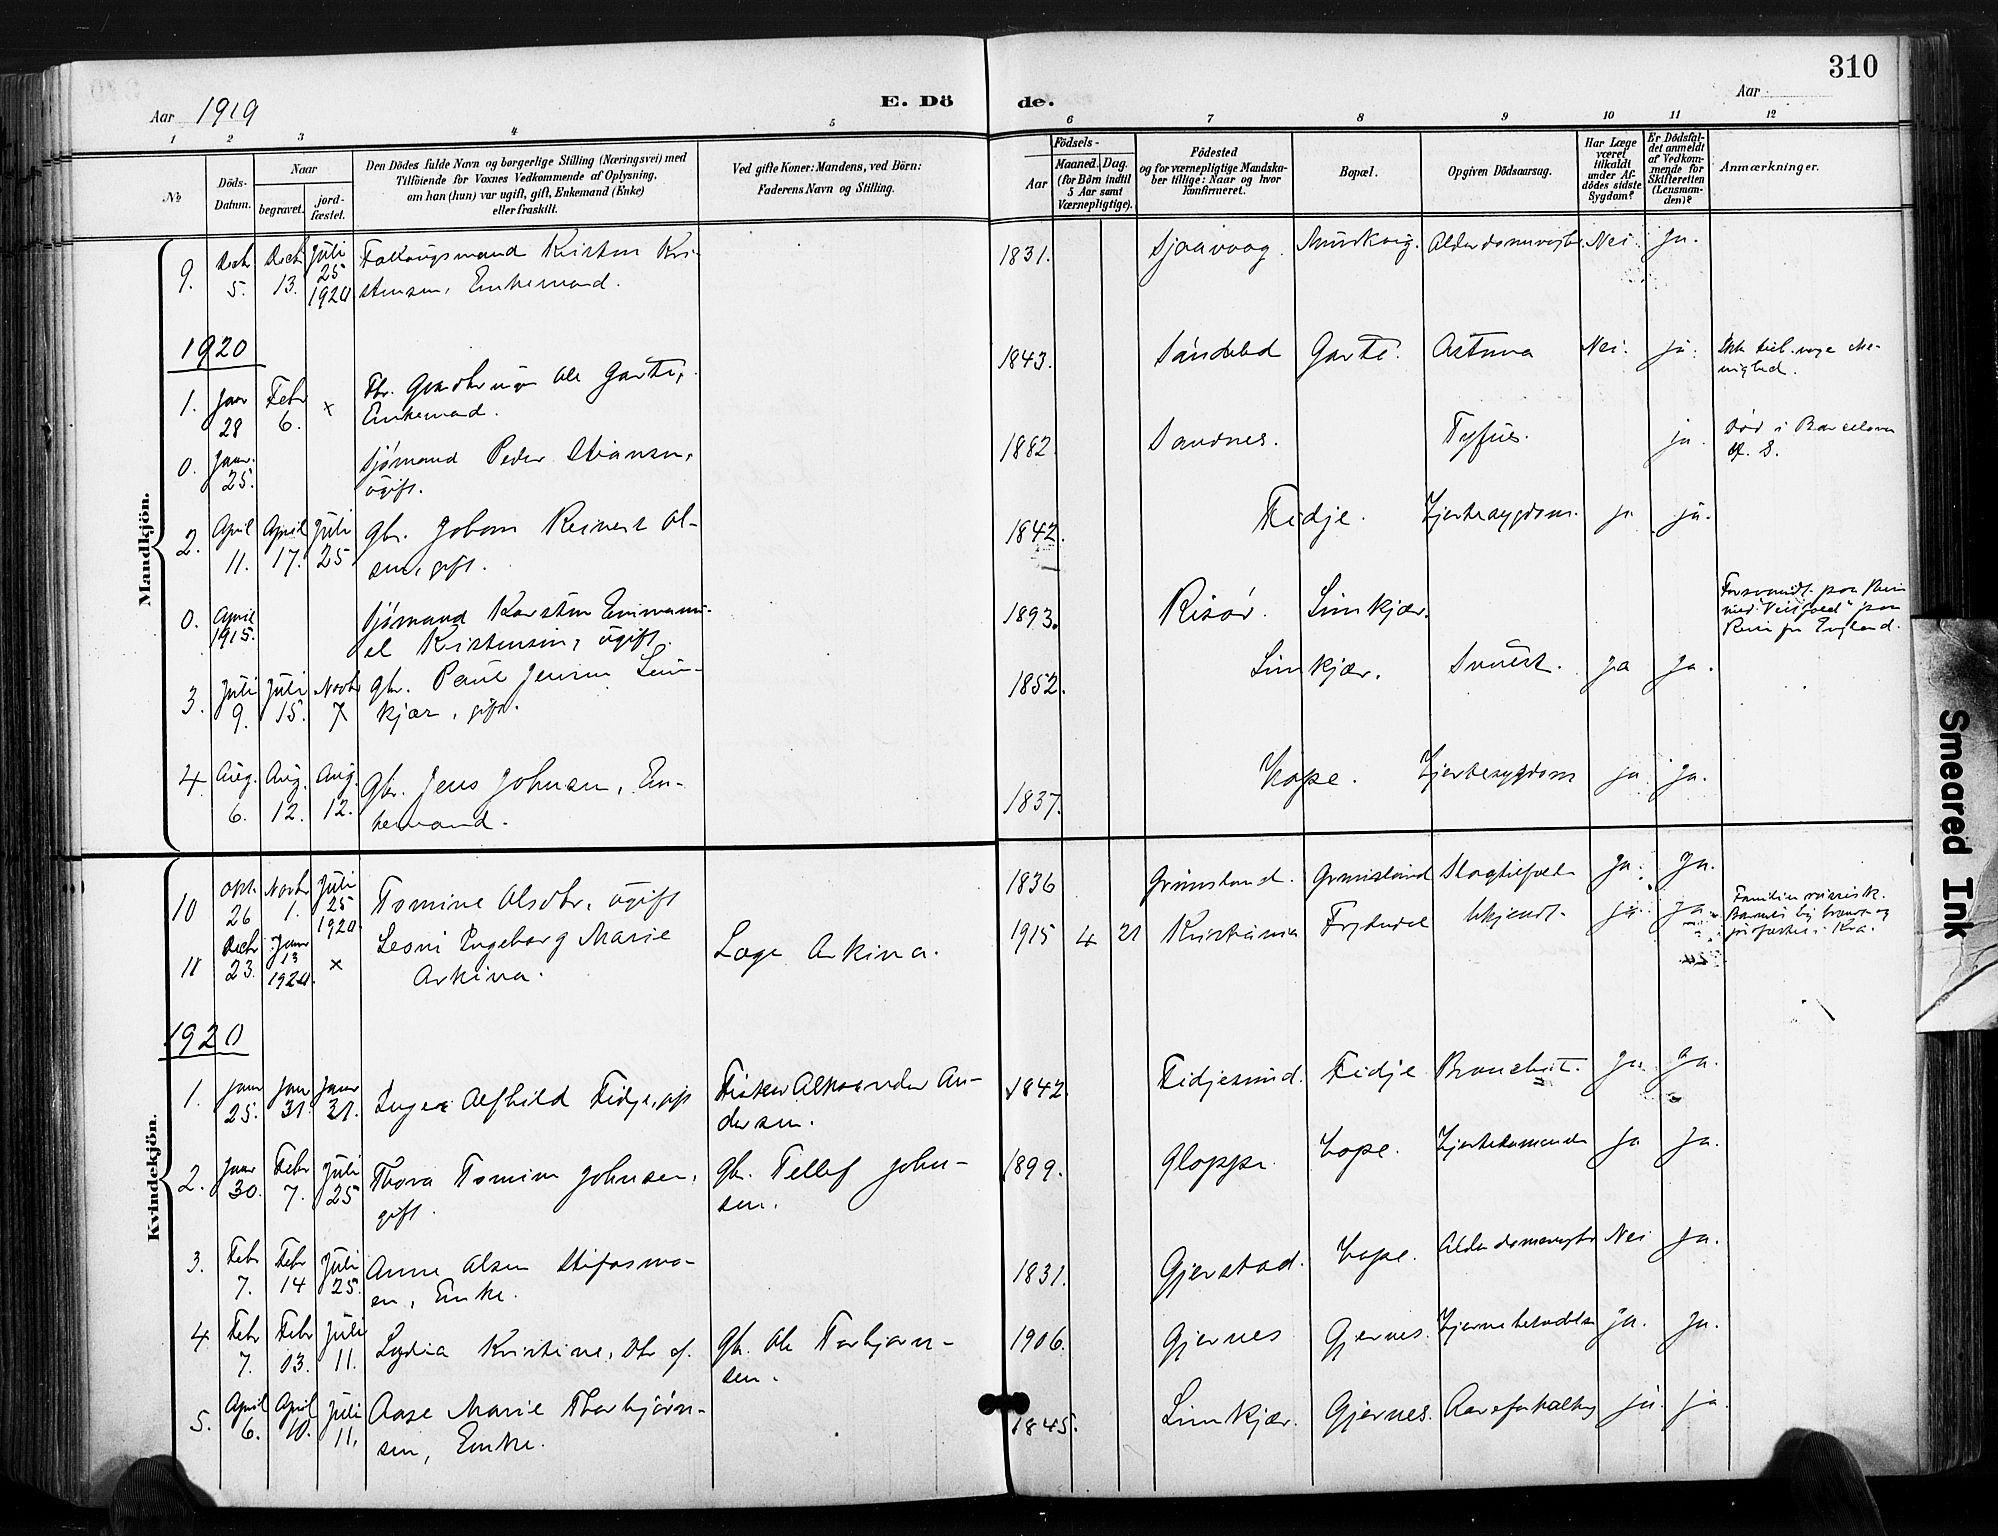 310
Aar 1919
E. Dö de.
Aar
1 2 3 4 5 6 7 8 9 10 11 12
№
Döds-
Datum.
Naar
begravet.
jord-
fæstet.
Den Dödes fulde Navn og borgerlige Stilling (Næringsvei) med
Tilföiende for Voxnes Vedkommende af Oplysning,
om han (hun) var ugift, gift, Enkemand (Enke)
eller fraskilt.
Ved gifte Koner: Mandens, ved Börn:
Faderens Navn og Stilling.
Födsels-
Aar
Maaned. Dag.
(for Börn indtil
5 Aar samt
Værnepligtige).
Födested
og for værnepligtige Mandska-
ber tillige: Naar og hvor
konfirmeret.
Bopæl.
Opgiven Dödsaarsag.
Har Læge
været
tilkaldt
under Af-
dödes sidste
Sygdom?
Er Dödsfal-
det anmeldt
af Vedkom-
mende for
Skifteretten
(Lensman-
den)?
Anmærkninger.
Mandkjön.
9. Decbr 5. Decbr 13. Juli 25 1920 Kristen Kri-
stensen, Enkemand. 1831. Alderdomssvaghed Nei. Ja.
1920
1. Janr 28 Febr 6. x Ole Garte,
Enkemand. 1843. Søndeled Garte. Astma Nei. ja.
0. Janr. 25. Sjømand Peder Stiansen,
ugift. 1882. Sandnes. Tyfus. ja. Død i Barcelona
2. April 11. April 17. Juli 25 Gbr. Johan Reinert Ol-
sen, gift. 1842. Fidje. Hjertesygdom. ja ja.
0. April 1915. Sjømand Karsten Emmanu-
el Kristensen, ugift. 1893. Risør. Limkjær.
England.
3. Juli 9. Juli 15. Novbr 7 Gbr. Paul Jensen Lim-
kjær, gift. 1852. Limkjær. ja ja.
4. Aug. 6. Aug. 12. Aug. 12. Gbr. Jens Johnsen, En-
kemand. 1837. Hope. Hjertesygdom ja. ja.
Kvindekjön.
10 Okt. 26 Novbr 1. Juli 25 1920. Tomine Olsdtr. ugift 1836 Grimsland. Grimsland Slagtilfælde Ja. Ja.
11 Decbr 23. Janr 13 1920. x Ingeborg Marie
Arkiva. Læge Arkiva. 1915 4 21 Kristiania Frydendal Ukjendt. ja. ja. Familien
1920
1. Janr 25. Jan 31. Janr 31. Inger Alfhild Fidje, gift Fisker Alexander An-
dersen. 1842. Fidjesund. Fidje Bronchit. Ja. Ja.
2. Janr 30. Febr 7. Juli 25 Thora Tomine Johnsen,
gift. Gbr. Tellef John-
sen. 1899. Hope. Ja Ja.
3. Febr 7. Febr 14 Juli 25. Anne Olsen Stifosmo-
en, Enke. 1831. Gjerstad. Hope. Alderdomssvaghed Nei Ja.
4 Febr 7. Febr 13. Juli 11. Lydia Kristine, Dtr. af. Gbr. Ole Torbjørn-
sen. 1906. Gjernes Gjernes. Hjernebetændelse ja. ja.
5. April 6. April 10. Juli 11. Aase Marie Thorbjørn-
sen, Enke. 1845. Limkjær. Gjernes. Aareforkalkning ja. ja.
Smeared Ink